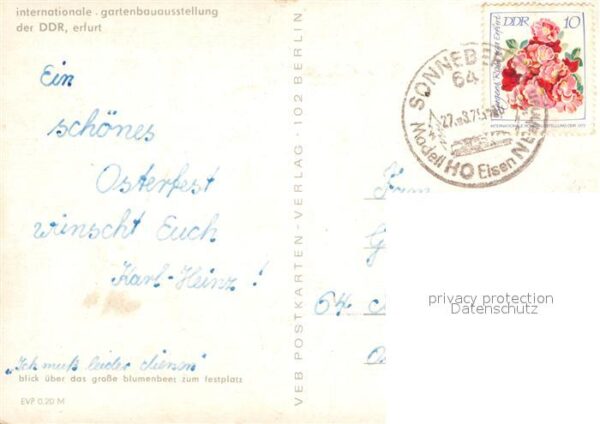 internationale gartenbauausstellung
der DDR, erfurt
Ein
schönes
Osterfest
wünscht Euch
Karl-Heinz!
„Ich muß leider dienen"
blick über das große blumenbeet zum festplatz
EVP 0,20 M
VEB POSTKARTEN-VERLAG · 102 BERLIN
DDR 10
SONNEB
64
Modell HO Eisen
Fam
G
64
privacy protection
Datenschutz